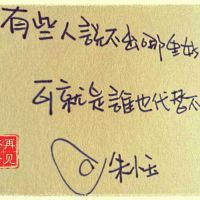 有些人說不出哪里好
可就是誰也代替不
再见
朱小玉